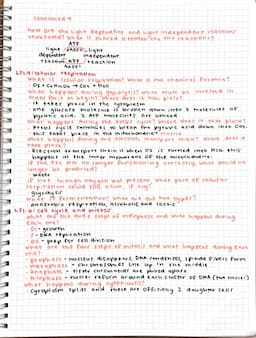 How are the light dependent and light independent reactions
related? What is shared between the two reactions?
ATP
light light
dependent independent
reaction ATP reaction
NADPH
LT5: Cellular respiration
What is cellular respiration? What is the chemical formula?
What happens during glycolysis? What must be invested in
order to begin? Where does it take place?
it takes place in the cytoplasm
one glucose molecule is broken down into 2 molecules of
pyruvic acid, 2 ATP molecules are
What happens during the citric cycle? Where does it take place?
pyruvic acid is broken down into CO2
this takes place in the mitochondria
What happens during the electron transport chain? Where does it
take place?
Electron transport chain is when O2 is turned into H2O this
happens in the inner membrane of the mitochondria.
If the ETC was no longer functioning correctly, what would no
longer be produced?
water
If not enough oxygen was present, what part of cellular
respiration could still occur, if any?
glycolysis
What is fermentation? What are the types?
anaerobic respiration, alcoholic and lactic
cell cycle and mitosis
What are the three steps of interphase and what happens during
each one?
G1- growth
S - DNA replication
G2 - prep for cell division
What are the four steps of mitosis and what happens during each
one?
prophase - nucleus disappears, DNA condenses, spindle fibers form
metaphase - chromosomes line up in the middle
anaphase - sister chromatids are pulled apart
telophase - nuclei reform around each cluster of DNA (two nuclei)
What happens during cytokinesis?
cytoplasm splits and there are officially 2 daughter cells